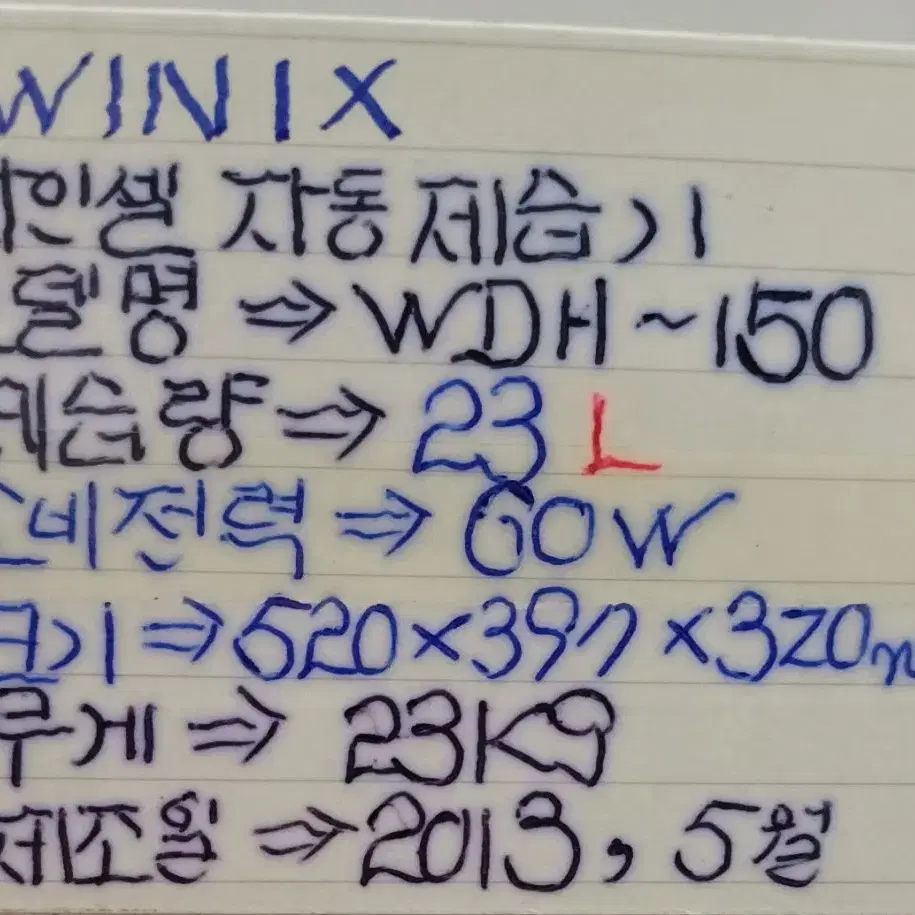 WINIX
파인셀 자동제습기
모델명 ⇒ WDH~150
제습량 ⇒ 23 L
소비전력 ⇒ 60W
크기 ⇒ 520×397×320m
무게 ⇒ 23Kg
제조일 ⇒ 2013, 5월